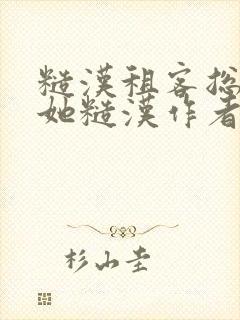 糙漢租客捴
她糙漢作者
杉山圭